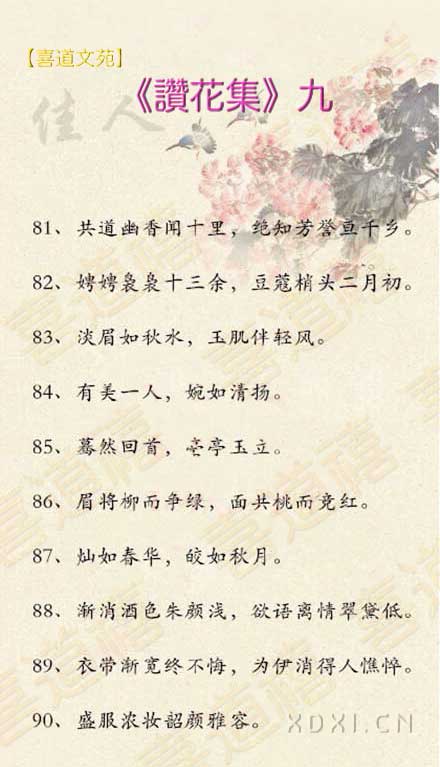 【喜道文苑】
《讚花集》九
佳人
81、共道幽香闻十里，绝知芳誉亘千乡。
82、娉娉袅袅十三余，豆蔻梢头二月初。
83、淡眉如秋水，玉肌伴轻风。
84、有美一人，婉如清扬。
85、蓦然回首，亭亭玉立。
86、眉将柳而争绿，面共桃而竞红。
87、灿如春华，皎如秋月。
88、渐消酒色朱颜浅，欲语离情翠黛低。
89、衣带渐宽终不悔，为伊消得人憔悴。
90、盛服浓妆韶颜雅容。
XDXI.CN
喜道禧